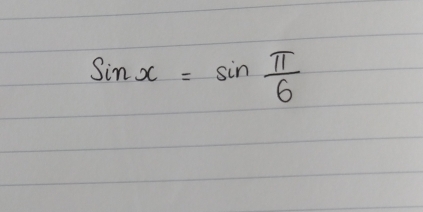 Sin x = sin π/6